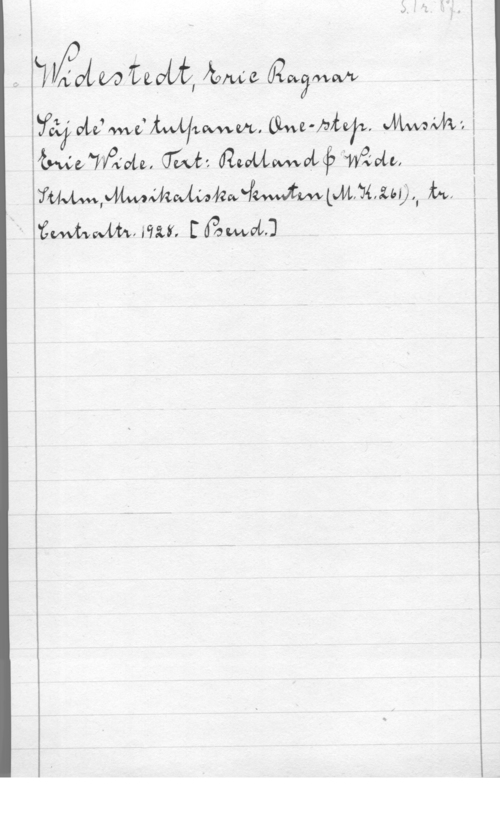 Widestedt, Eric Ragnar
Säj de' me' tulpaner. One-step. Musik:
Eric Wide. Text: Redland & Wide.
Sthlm, Musikaliska knuten (M.K.261)., tr.
Centraltr. 1928. [Pseud.]